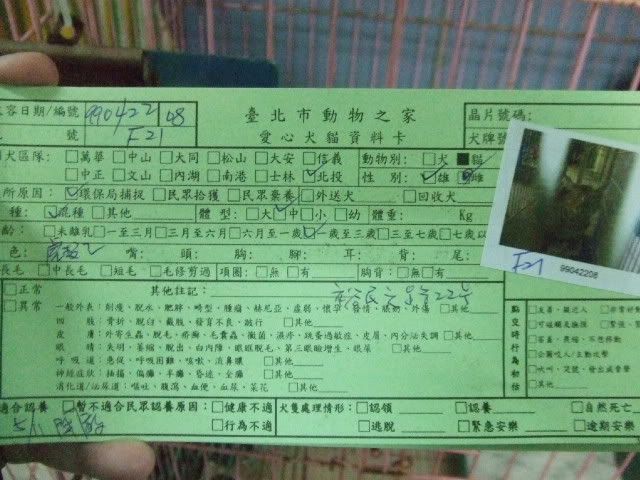 容日期/編號 990422 48 臺北市動物之家 晶片號碼:
號 F21 愛心犬貓資料卡 犬牌號
犬區隊: □萬華 □中山 □大同 □松山 □大安 □信義 動物別: □犬 ■貓
□中正 □文山 □內湖 □南港 □士林 ☑北投 性別: ☑雄 ☑雌
所原因: ☑環保局捕捉 □民眾拾獲 □民眾棄養 □外送犬 □回收犬
種: ☑混種 □其他 體型: □大 ☑中 □小 □幼 體重: Kg
齡: □未離乳 □一至三月 □三月至六月 □六月至一歲 ☑一歲至三歲 □三至七歲 □七歲以
色: 嘴: 頭: 胸: 腳: 耳: 背: 尾:
長毛 □中長毛 □短毛 □毛修剪過 項圈: □無 □有 胸背: □無 □有
F21 99042208
□正常 其他註記:
□異常 一般外表: 削瘦、脫水、肥胖、畸型、腫瘤、赫尼亞、虛弱、懷孕、發情、脹奶、外傷 □其他
四肢: 骨折、脫臼、截肢、發育不良、跛行 □其他
皮膚: 外寄生蟲、脫毛、疥癬、毛囊蟲、黴菌、濕疹、跳蚤過敏症、皮屑、內分泌失調 □其他
眼睛: 失明、萎縮、脫出、白內障、眼瞼脫毛、第三眼瞼增生、眼屎 □其他
呼吸道: 急促、呼吸困難、咳嗽、流鼻膿 □其他
神經症狀: 抽搐、偏癱、半癱、昏迷、全癱 □其他
消化道/泌尿道: 嘔吐、腹瀉、血便、血尿、菜花 □其他
點交時行為初估
□友善、親近人 □非常好動
□可碰觸及拖抱 □緊張、
□害羞、畏縮、不想移動
□企圖咬人/主動攻擊
□吠叫、哭號、發出威脅聲
□其他
適合認養 □暫不適合民眾認養原因: □健康不適 犬隻處理情形: □認領 □認養 □自然死亡
□行為不適 □逃脫 □緊急安樂 □逾期安樂